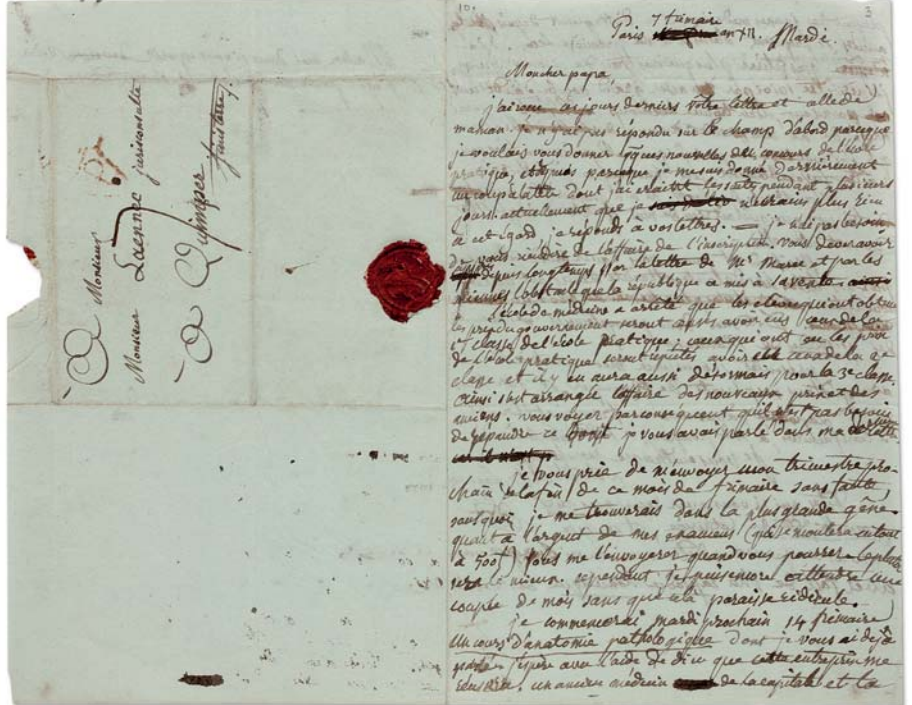 A Monsieur
Monsieur Laennec jurisconsulte
A Quimper
finistere
10.
7 frimaire
Paris an XII. Mardi.
Mon cher papa,
j'ai reçu ces jours derniers vôtre lettre et celle de
maman. je n'y ai pas répondu sur le champ d'abord parceque
je voulais vous donner qques nouvelles du concours de l'école
pratique, et depuis parceque je me suis donné dernièrement
un coup à la tête dont j'ai craint les suites pendant plusieurs
jours. actuellement que je ne crains plus rien
à cet égard je réponds à vos lettres. — je n'ai pas besoin
de vous de l'affaire de l'inscription, vous devez avoir
depuis longtemps par la lettre de Mr et par les
miennes l'obstacle que la république a mis à sa vente.
l'école de médecine a arrêté que les eleves qui ont obtenu
les prix du gouvernement seront après avoir eus ceux de la
classe de l'école pratique; ceux qui ont eu les prix
de l'école pratique seront réputés avoir ceux de la 2e
classe et il y en aura aussi désormais pour la 3e classe.
ainsi s'est arrangée l'affaire des nouveaux prix et des
anciens. vous voyez par conséquent qu'il n'est pas besoin
de répandre ce dont je vous avais parlé dans ma lettre
je vous prie de m'envoyer mon trimestre pro-
chain à la fin de ce mois de frimaire sans faute,
sans quoi je me trouverais dans la plus grande gêne.
quant à l'argent de mes examens (qui se montera en tout
à 500f) vous me l'envoyerez quand vous pourrez le plutot
sera le mieux. cependant je puis encore attendre une
couple de mois sans que cela paraisse ridicule.
je commencerai mardi prochain 14 frimaire
un cours d'anatomie pathologique dont je vous ai déjà
parlé. j'espère avec l'aide de dieu que cette entreprise me
réussira. un ancien médecin de la capitale et la